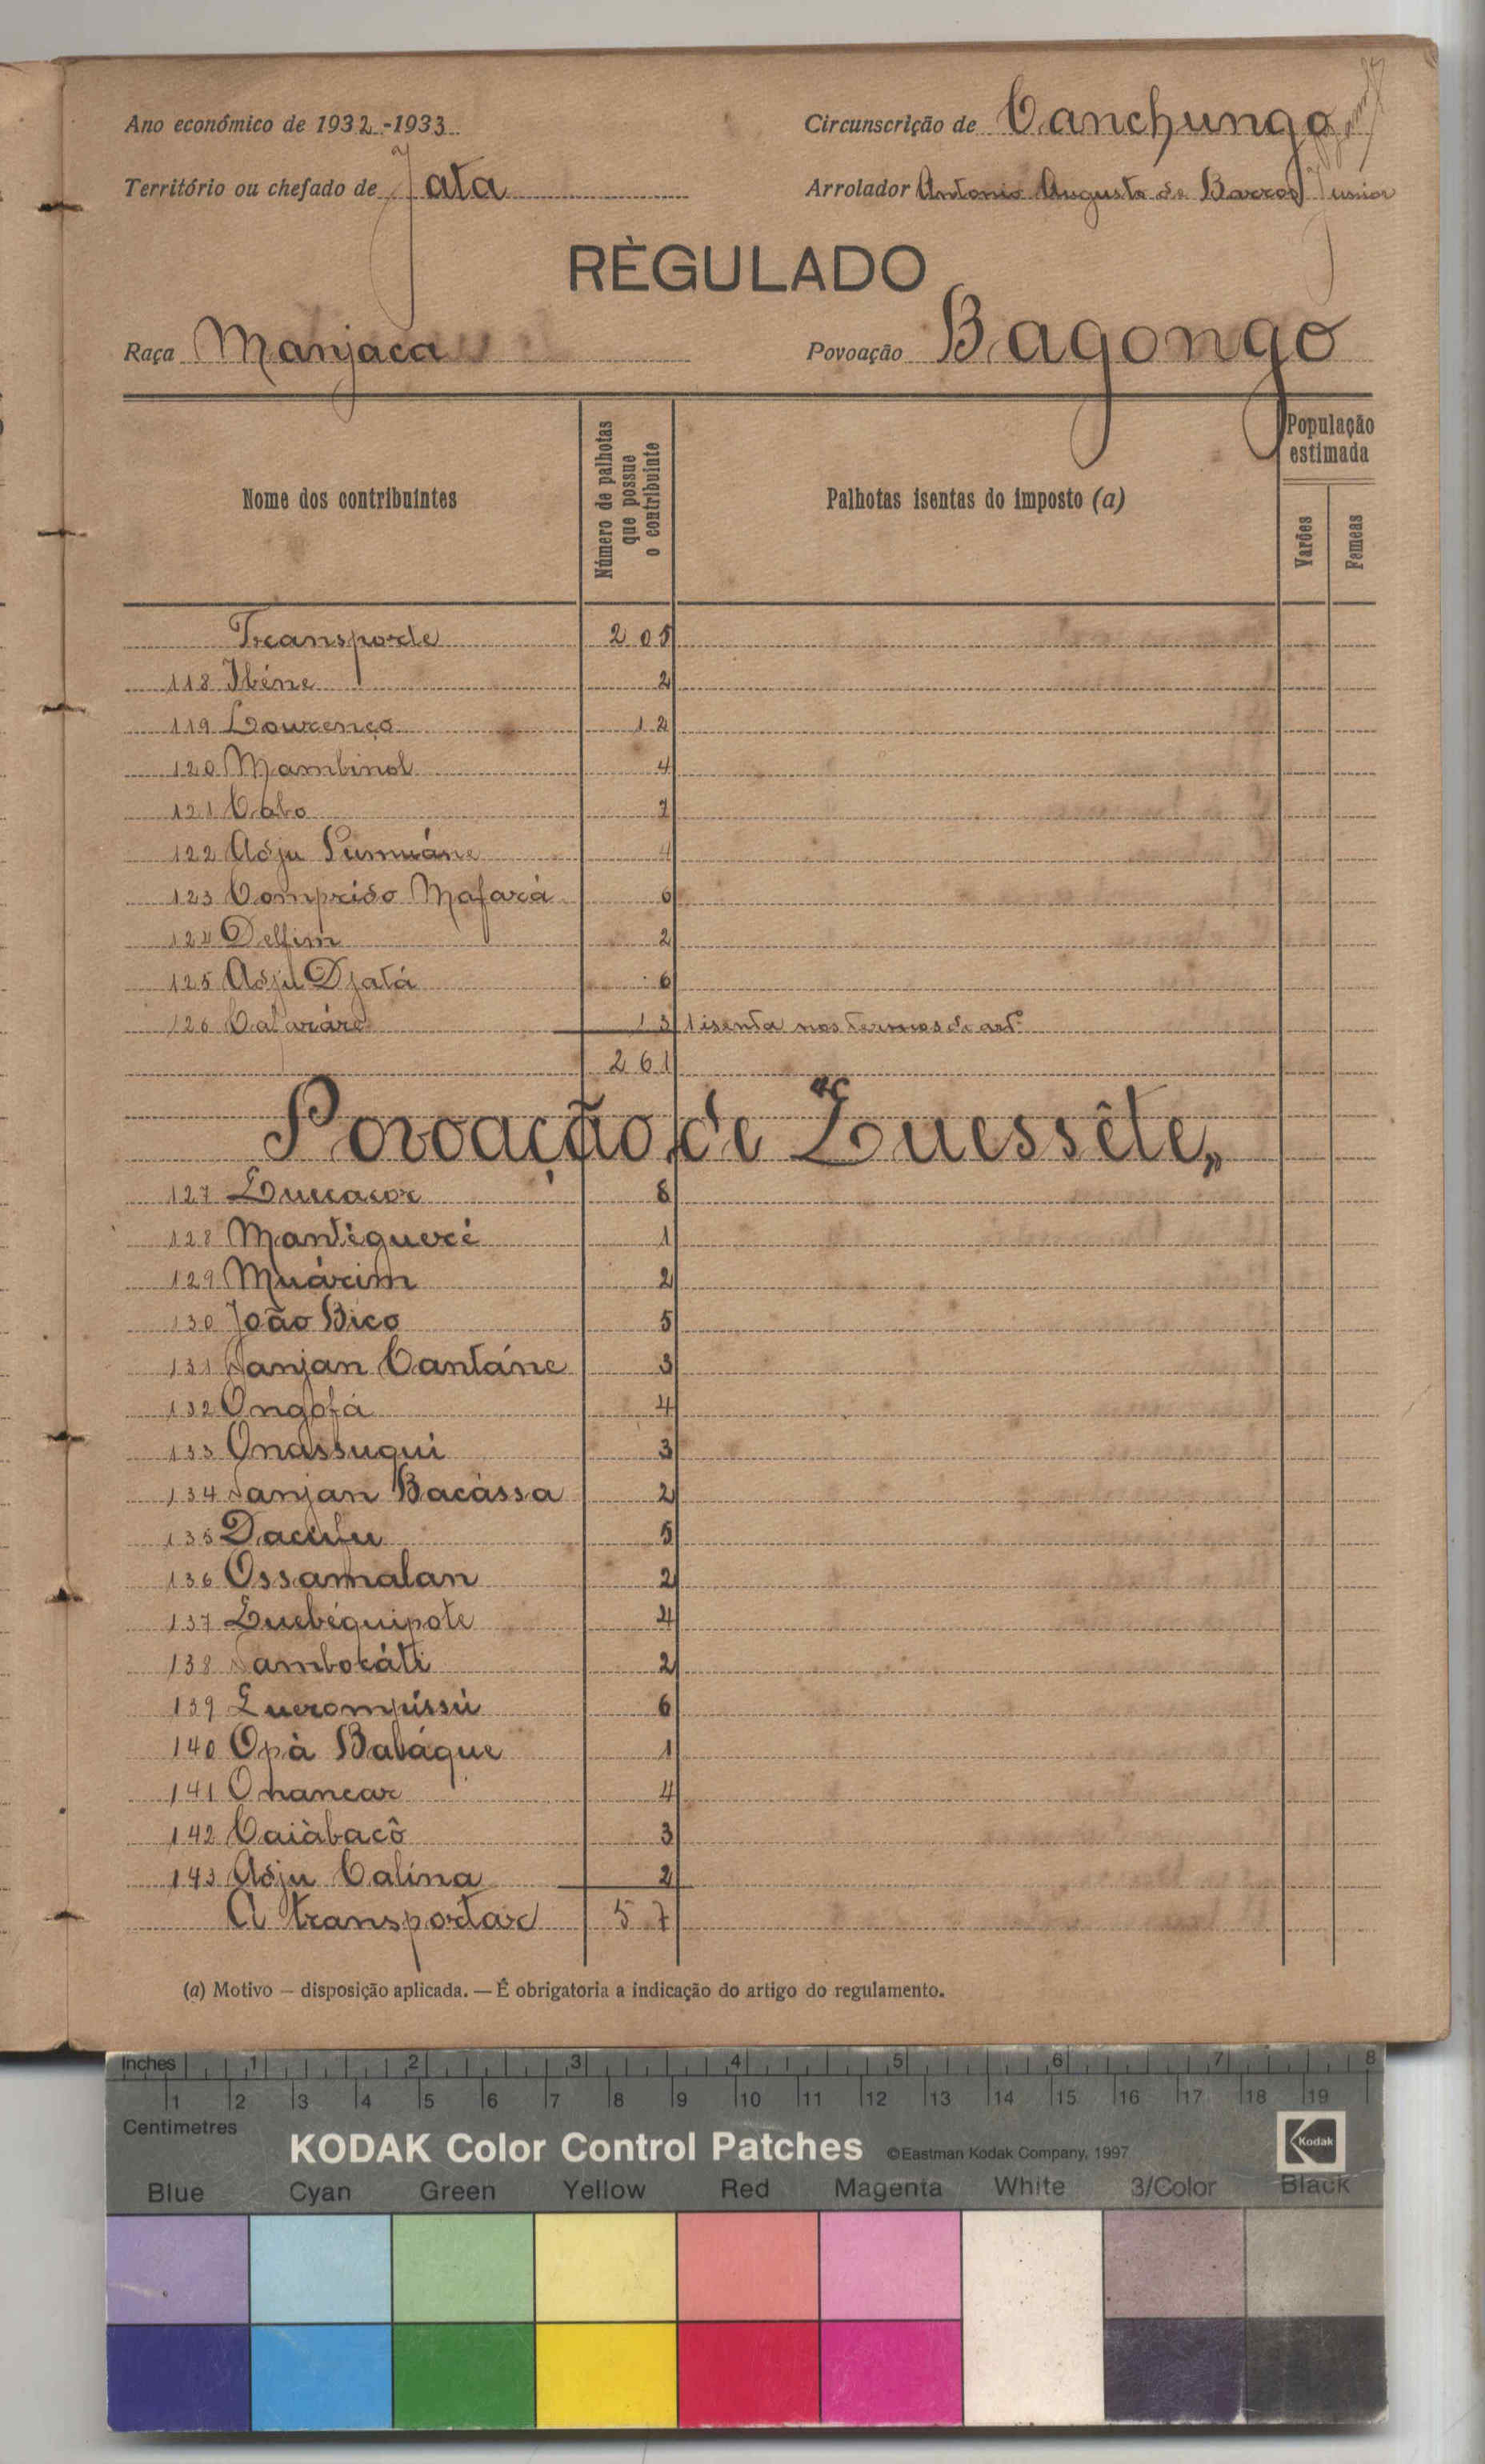 Ano económico de 1932-1933
Circunscrição de Canchungo
Território ou chefado de Jata
Arrolador Antonio Augusto de Barros Junior
RÈGULADO
Raça Manjaca
Povoação Bagongo
Nome dos contribuintes
Número de palhotas que possue o contribuinte
Palhotas isentas do imposto (a)
População estimada
Varões
Femeas
Transporte 205
118 Ibéne 2
119 Lourenço 12
120 Mambinol 4
121 Cabo 7
122 Adju Pumuáne 4
123 Comprido Mafará 6
124 Delfim 2
125 Adju Djatá 6
126 13 1 isenta nos termos do artº
261
Povoação de "Quessête"
127 8
128 Mantégueré 1
129 Muárim 2
130 João Bico 5
131 Janjan Cantáne 3
132 Ongofá 4
133 Onassuqui 3
134 Janjan Bacássa 2
135 5
136 Ossamalan 2
137 Quebéquipote 4
138 Sambocáti 2
139 Querompissú 6
140 Opà Babáque 1
141 Onancar 4
142 Caiàbacô 3
143 Adju Calina 2
A transportar 57
(a) Motivo — disposição aplicada. — É obrigatoria a indicação do artigo do regulamento.
Inches 1 2 3 4 5 6 7 8
1 2 3 4 5 6 7 8 9 10 11 12 13 14 15 16 17 18 19
Centimetres
KODAK Color Control Patches ©Eastman Kodak Company, 1997 Kodak
Blue Cyan Green Yellow Red Magenta White 3/Color Black